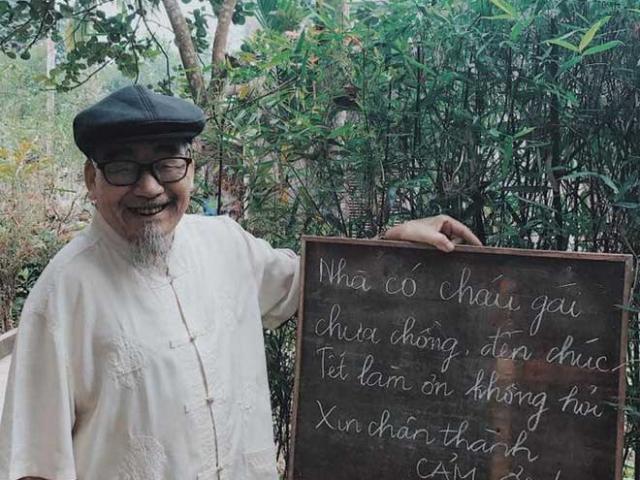 Nhà có cháu gái
chưa chồng, đến chúc
Tết làm ơn không hỏi
Xin chân thành
CẢM